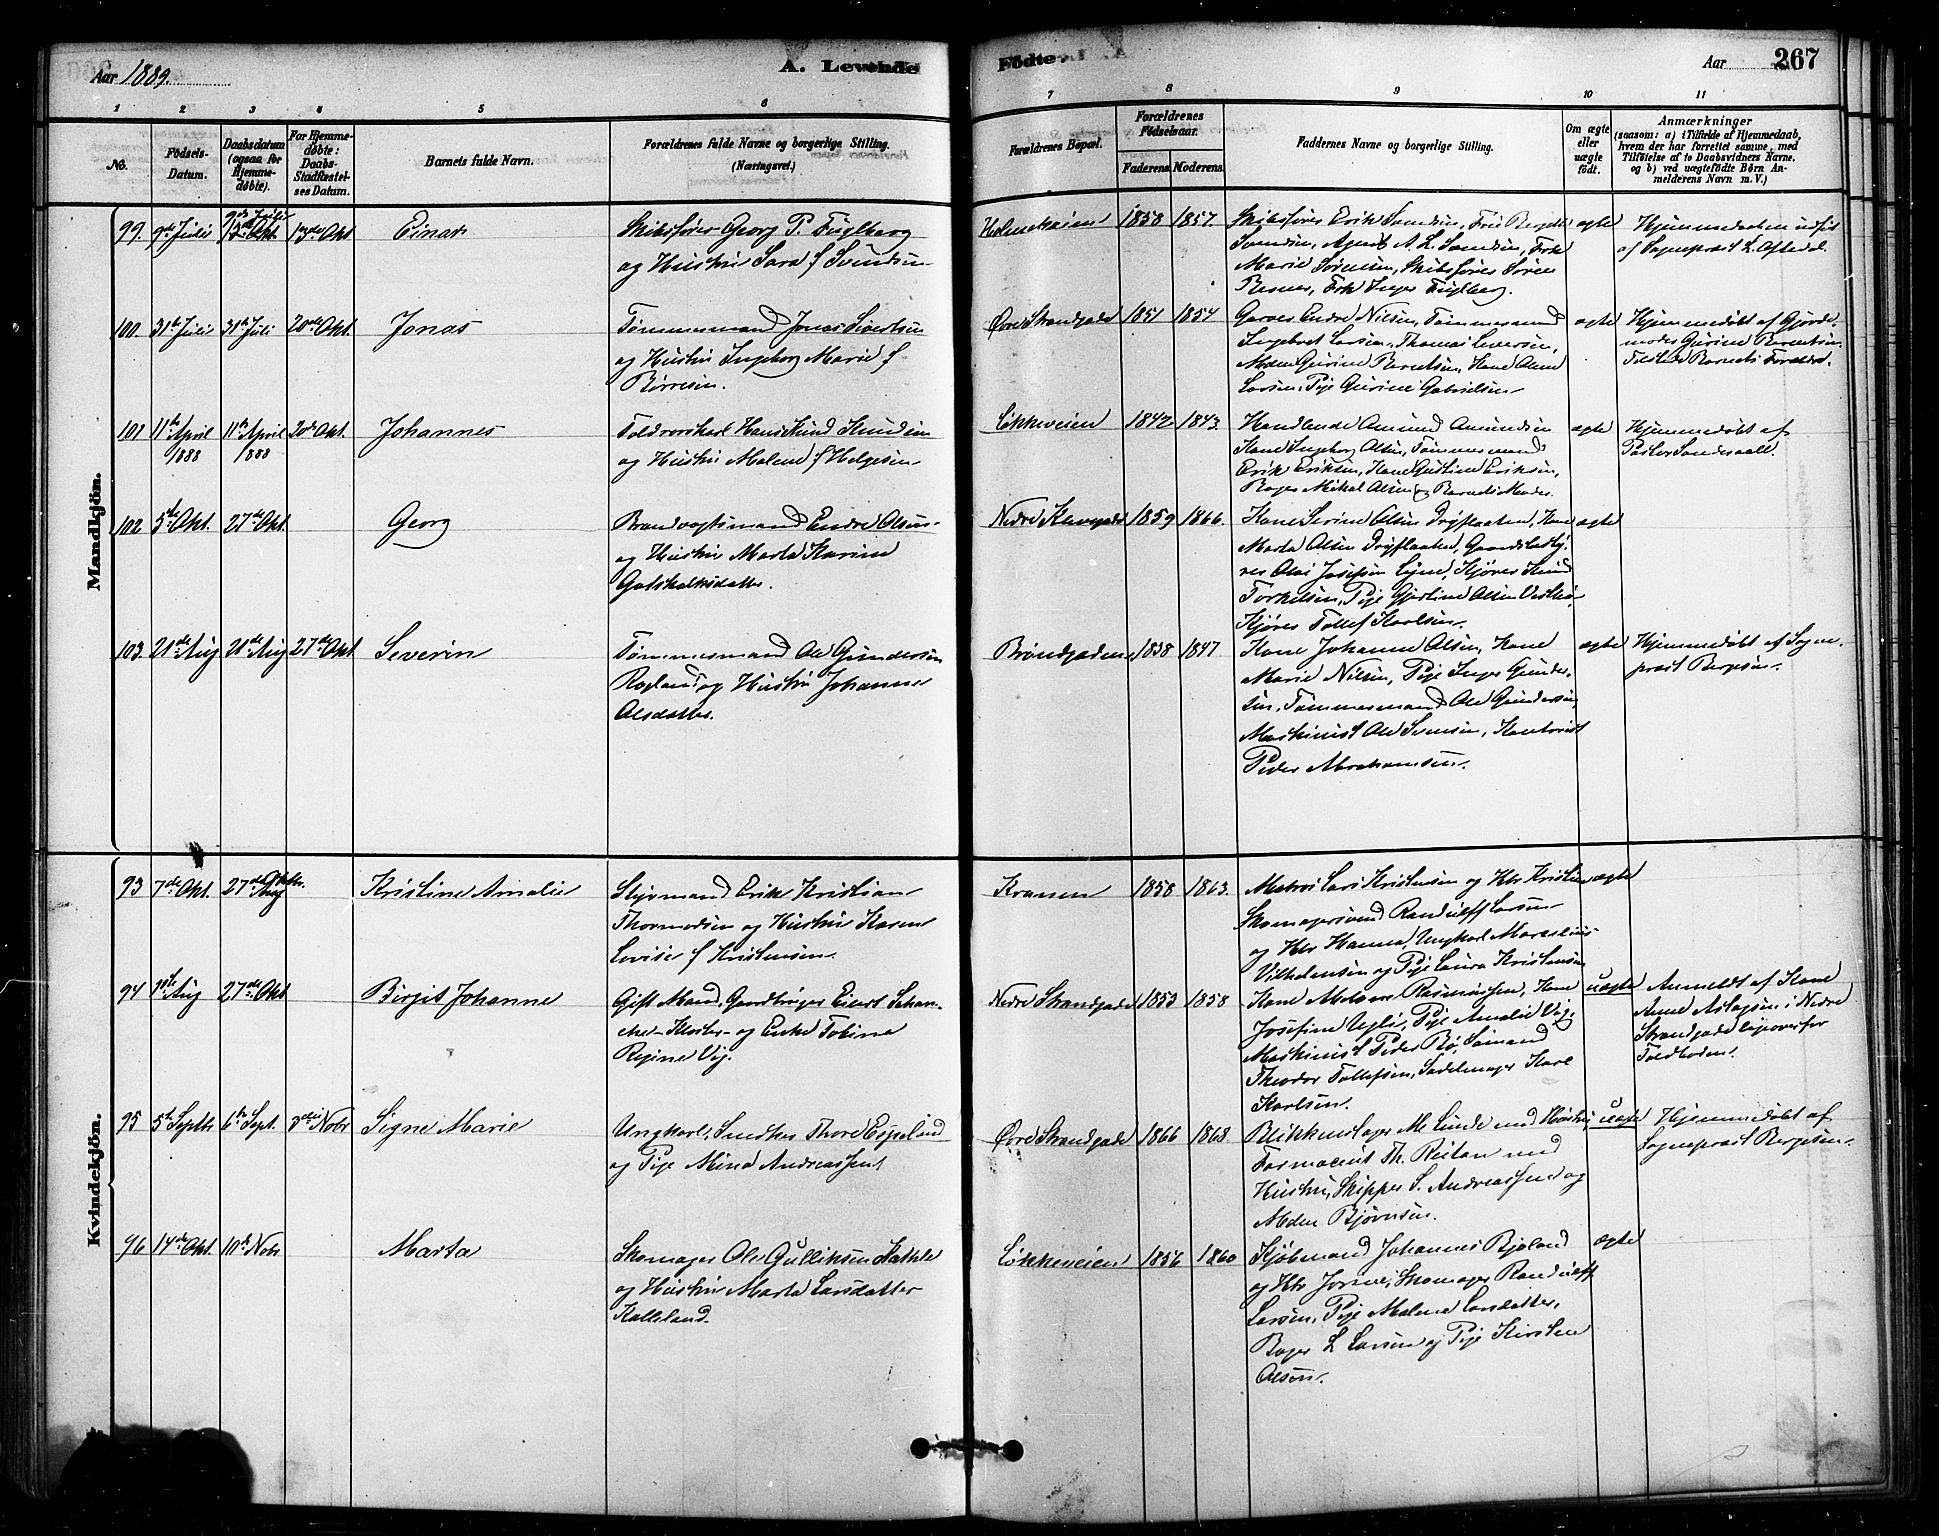 Aar 1889.
A. Levende
Fødte.
Aar
267
1 2 3 4 5 6 7 8 9 10 11
No.
Fødsels-
Datum.
Daabsdatum
(ogsaa for
Hjemme-
døbte).
For Hjemme-
døbte:
Daabs-
Stadfæstel-
ses Datum.
Barnets fulde Navn.
Forældrenes fulde Navne og borgerlige Stilling.
(Næringsvei.)
Forældrenes Bopæl.
Forældrenes
Fødselsaar.
Faderens. Moderens.
Faddernes Navne og borgerlige Stilling.
Om ægte
eller
uægte
født.
Anmærkninger
(saasom: a) i Tilfælde af Hjemmedaab,
hvem der har forrettet samme, med
Tilføielse af to Daabsvidners Navne,
og b) ved uægtefødte Børn An-
melderens Navn m. V.)
Mandkjøn.
99. 9de Juli 9de Juli 13de Okt. 13de Okt Einar
Skibsfører Georg P. Fuglberg
og Hustru Sara f Svendsen
Holmekaien 1858 1857.
Skibsfører Erik Svendsen, Fru Bergitte
Svendsen, Agent A. L. Svendsen, Frk
Marie Sørensen, Skibsfører Søren
Resner, Frk Inger Fuglberg.
ægte
Hjemmedaaben udført
af Sognepræst L. Oftedal.
100. 31te Juli 31te Juli 20de Okt. Jonas
Tømmermand Jonas Sivertsen
og Hustru Ingeborg Marie f
Børresen.
Øvre Strandgade 1851 1854
Garver Endre Nilsen, Tømmermand
Ingebret Larsen, Thomas Iversen,
Mdm Gurine Berntsen, Kone Oline
Larsen, Pige Gurine Gabrielsen
ægte
Hjemmedøbt af Gjorde-
moder Gurine Berentsen
Tilstede Barnets Forældre.
101 11te April 1888 11te April 1888 20de Okt. Johannes
Toldrorskarl Hans Knud Knudsen
og Hustru Malene f Helgesen
Løkkeveien 1842 1843.
Handlende Amund Amundsen
Kone Ingeborg Olsen, Tømmermand
Erik Eriksen, Kone Gustine Eriksen,
Bager Mikal Olsen og Barnets Moder.
ægte
Hjemmedøbt af
Pastor Sandesaale.
102 5te Okt. 27de Okt. Georg
Brandvagtsmand Endre Olsen
og Hustru Marta Karine
Gotskalksdatter.
Nedre Klevegade 1859 1866.
Kone Serine Olsen Dryflaaten, Kone
Marta Olsen Dryflaaten, Gaardsbesty-
rer Olai Josefsen Lyne, Kjører Knud
Torkelsen, Pige Gjertine Olsen
Kjører Tollef Karlsen.
ægte
103. 21de Aug 21de Aug 27de Okt. Severin
Tømmermand Ole Gundersen
Rogland og Hustru Johanne
Olsdatter.
Brøndgaden 1838 1847
Kone Johanne Olsen, Kone
Marie Nilsen, Pige Inger Gunder-
sen, Tømmermand Ole Gundersen
Maskinist Ole Svensen, Kontorist
Peder Abrahamsen.
ægte
Hjemmedøbt af Sogne-
præst Børgesen.
Kvindekjøn.
93 7de Okt. 27de Aug Oktbr. Kristine Amalie
Styrmand Erik Kristian
Thormodsen og Hustru Karen
Lovise f Kristensen.
Kranen 1858 1863.
Matros Lars Kristensen og Htr Kristine
Skomagersvend Randulff Larsen
og Htr Hanna, Ungkarl Marselius
Vilhelmsen og Pige Laura Kristensen
ægte
94 1ste Aug 27de Okt Birgit Johanne
Gift Mand, Gaardbruger Eiert Schan-
cher Kloster og Enke Tobine
Regine Vig.
Nedre Strandgade 1853 1858
Kone Rasmussen, Kone
Josefine Ugli, Pige Amalie Vig,
Maskinist Peder Bø, Sømand
Theodor Tollefsen, Sadelmager Karl
Karlsen.
uægte
Anmeldt af Kone
Anne Aslagsen i Nedre
Strandgade ligeoverfor
Toldboden.
95 5te Septbr 6te Sept. 3die Novbr Signe Marie
Ungkarl, Snedker Thore Espeland
og Pige Mina Andreassen
Øvre Strandgade 1866 1868.
Blikkenslager M. Lunde med Hustru,
Farmaceut Th. Reitan med
Hustru, Skipper S. Andreassen og
Mdm Bjørnsen.
uægte
Hjemmedøbt af
Sognepræst Børgesen.
96 14de Okt. 10de Novbr Marta
Skomager Ole Gulliksen
og Hustru Marta Larsdatter
Kalleland.
Løkkeveien 1856 1860
Kjøbmand Johannes Bjeland
og Htr Jorine, Skomager Randulff
Larsen, Pige Malene Larsdatter,
Bager L Larsen og Pige Kirsten
Olsen.
ægte